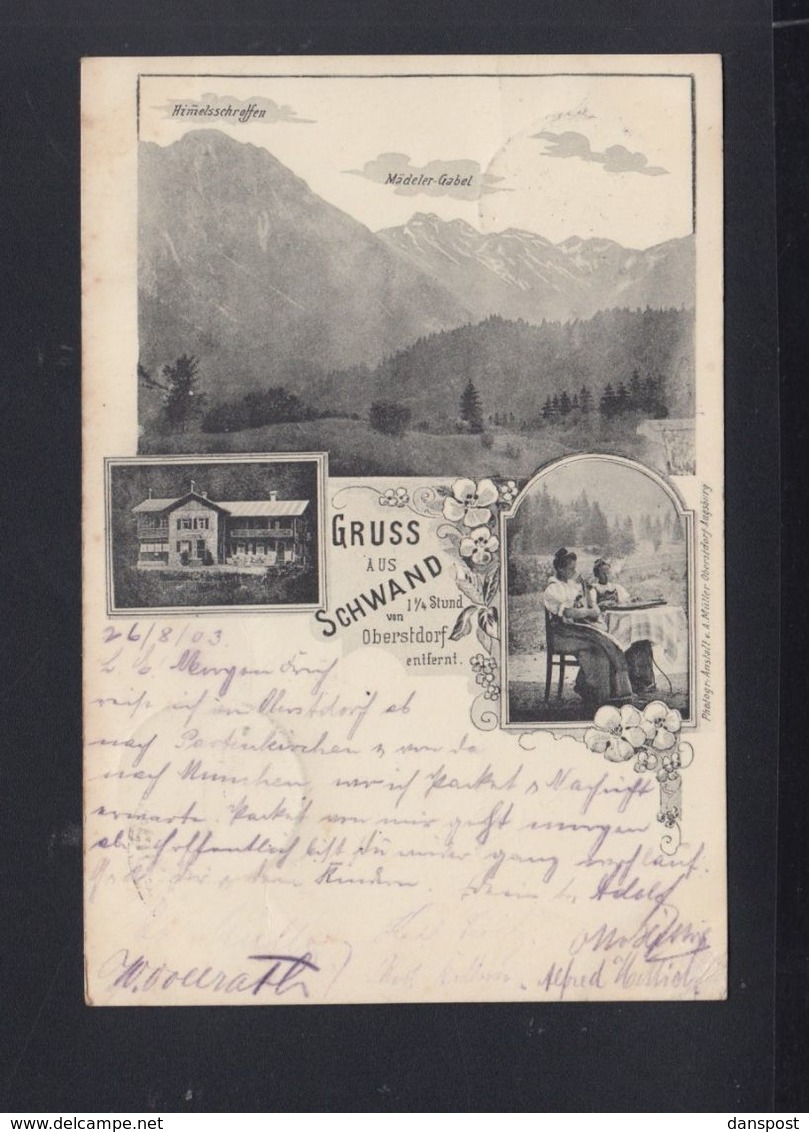 Him̄elsschroffen
Mädeler-Gabel
GRUSS
AUS
SCHWAND
1 1/4 Stund
von
Oberstdorf
entfernt.
Photogr. Anstalt v. A. Müller Oberstdorf Augsburg
26/8/03.
L. E. Morgen Früh
reise ich in Oberstdorf ab
nach Partenkirchen & von da
nach München, wo ich Packet & Nachricht
erwarte. Packet von mir geht morgen
ab. Hoffentlich bist du wieder ganz wohlauf.
dir & den Kindern. Dein Adolf
Otto
W. Vollrath
Alfred
danspost